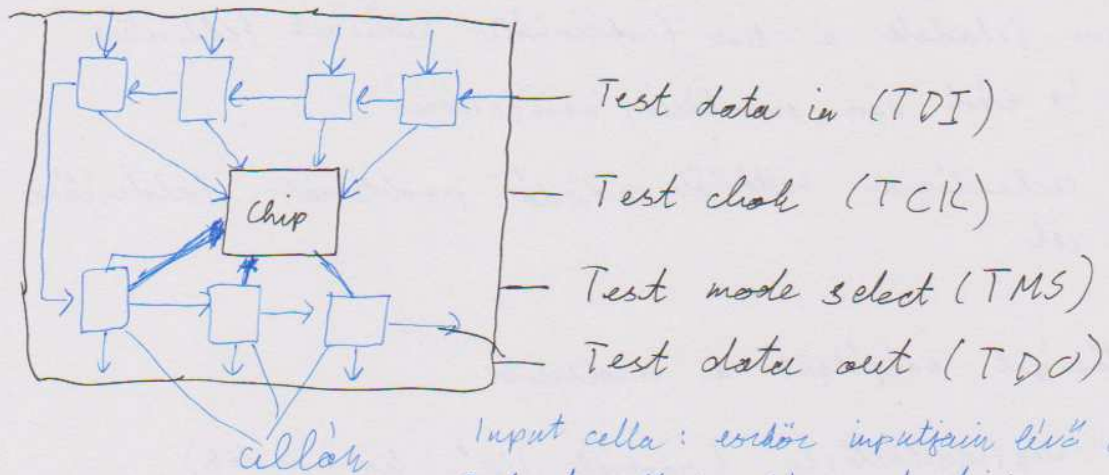 Test data in (TDI)
Chip
Test clock (TCK)
Test mode select (TMS)
Test data out (TDO)
cellák
Input cella: eszköz inputjain lévő